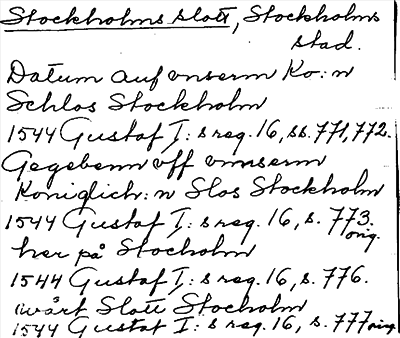 Stockholms slott, Stockholms
stad.
Datum auf vnserm Ko: n
Schlos Stockholm
1544 Gustaf I: s reg. 16, ss. 771, 772.
Gegebenn vff vnnserm
Koniglich: n Slos Stockholm
1544 Gustaf I: s reg. 16, s. 773.
orig.
her på Stocholm
1544 Gustaf I: s reg. 16, s. 776.
wårt Slott Stocholm
1544 Gustaf I: s reg. 16, s. 777 orig.